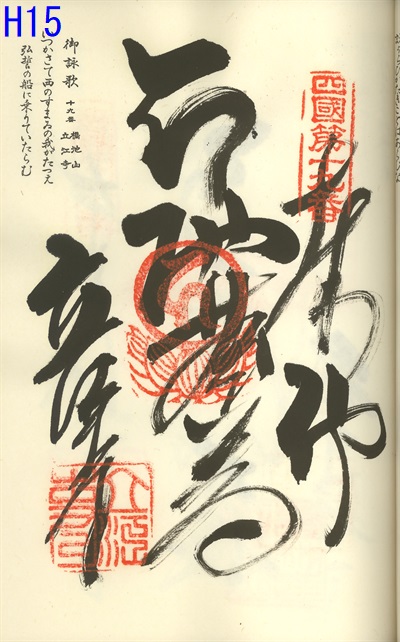 H15
四國第十九番
奉納
立江寺
立江寺印
御詠歌 十九番 橋池山 立江寺
いつかさて西のすまゐの我がたつえ
弘誓の船に乗りていたらむ